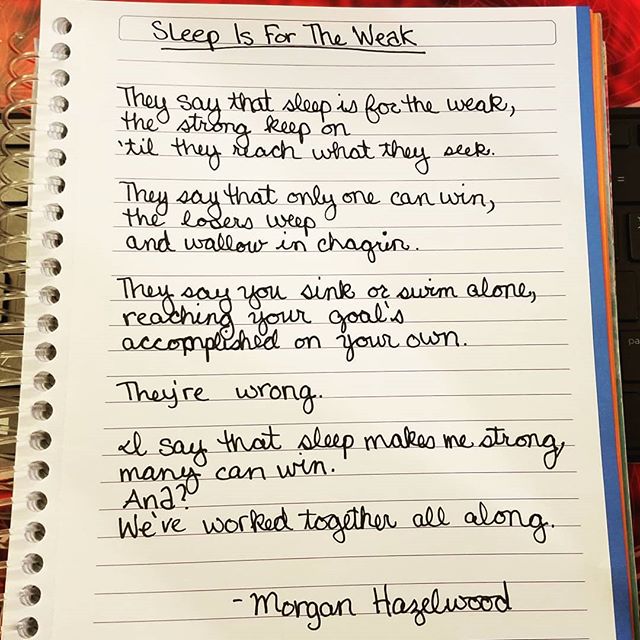 Sleep Is For The Weak
They say that sleep is for the weak,
the strong keep on
'til they reach what they seek.
They say that only one can win,
the losers weep
and wallow in chagrin.
They say you sink or swim alone,
reaching your goal's
accomplished on your own.
They're wrong.
I say that sleep makes me strong,
many can win.
And?
We've worked together all along.
- Morgan Hazelwood